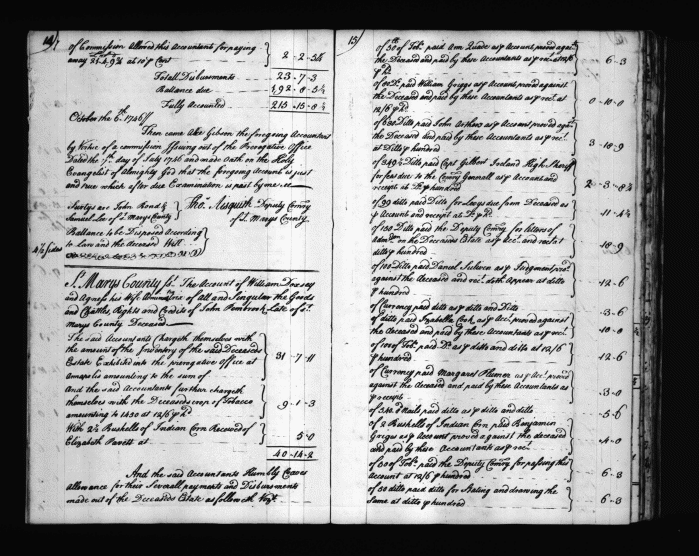 14
of Commission Allowed this Accountants for paying
away 21.4.9¾ at 10 ₽ Cent
2 - 2 - 5¼
Totall Disbursments 23 - 7 - 3
Ballance due 192 - 8 - 5½
Fully Accounted 215 - 15 - 8½
October the 6th 1746//
Then came Alex Gibson the foregoing Accountant
by Virtue of a Commission Issuing out of the Prerogative Office
Dated the day of July 1746 and made Oath on the Holy
Evangelist of Almighty God that the foregoing Account is just
and true which after due Examination is past by me
Suretys are John Road &
Samuel Lee of St Marys County
Thos Aisquith Deputy Comry
of St Marys County
Ballance to be Disposed According
to Law and the Deceased Will
4½ sides
St Marys County ss. The Account of William Dorsey
and Agness his Wife Admx of all and Singular the Goods
and Chattles Rights and Credits of John Pembrook Late of St
Marys County Deceased
The said Accountants Chargeth themselves with
the amount of the Inventory of the said Deceaseds
Estate Exhibited into the prerogative Office at
Annapolis amounting to the sum of
31 - 7 - 11
And the said Accountants further chargeth
themselves with the Deceaseds crop of Tobacco
amounting to 1450 at 12/6 ₽ Ct
9 - 1 - 3
With 2½ Bushells of Indian Corn Received of
Elizabeth at
5 - 0
40 - 14 - 2
And the said Accountants Humbly Craves
allowance for their Severall payments and Disbursments
made out of the Deceaseds Estate as followeth Vizt
15
of 50 of Tobo paid Ann Quade as ₽ Account proved agst
the Deceased and paid by these Accountants as ₽ rect at 12/6
₽ Ct
6 - 3
of Do paid William Griggs as ₽ Account proved against
the Deceased and paid by these Accountants as ₽ rect at
12/6 ₽ Ct
0 - 10 - 0
of 630 Ditto paid John Arthors as ₽ Account proved agst
the Deceased and paid by these Accountants as ₽ rect
at Ditto ₽ hundred
3 - 18 - 9
of 349½ Ditto paid Capt Gilbert Ireland High Sheriff
for fees due to the Comry Generall as ₽ Account and
receipt at Do ₽ hundred
2 - 3 - 8¼
of 99 ditto paid Ditto for Levys due from Deceased as
₽ Account and receipt at Do ₽ Ct
11 - 4½
of 150 Ditto paid the Deputy Comry for letters of
admn on the Deceaseds Estate as ₽ Acct and rect at
ditto ₽ hundred
18 - 9
of 100 Ditto paid Daniel as ₽ Judgment proved
against the Deceased and rect doth appear at ditto
₽ hundred
12 - 6
of Currency paid ditto as ₽ ditto and Ditto
3 - 6
of ditto paid Cook as ₽ Acct proved against
the Deceased and paid by these Accountants as ₽ rect
10 - 0
of 100 of Tobo paid Do as ₽ ditto and ditto at 12/6
₽ hundred
12 - 6
of Currency paid Margaret as ₽ Acct proved
against the deceased and paid by these Accountants as
₽ receipt
3 - 0
of Nails paid ditto as ₽ ditto and ditto
5 - 6
of 2 Bushells of Indian Corn paid Benjamin
Griggs as ₽ Account proved against the deceased
and paid by these Accountants as ₽ rect
4 - 0
of 50 of Tobo paid the Deputy Comry for passing this
Account at 12/6 ₽ hundred
6 - 3
of 50 ditto paid ditto for Stating and drawing the
Same at ditto ₽ hundred
6 - 3